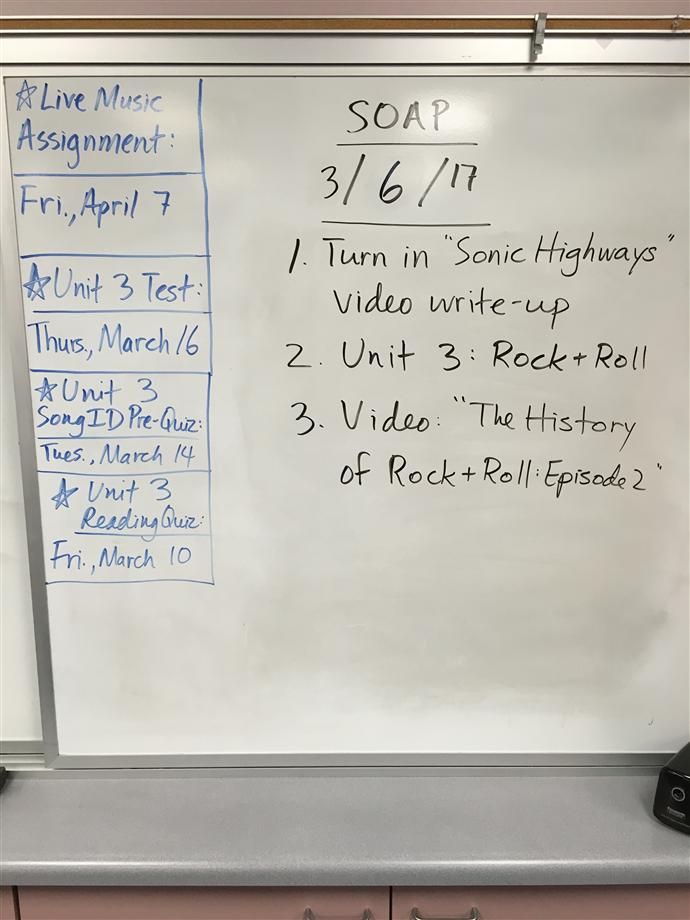 ☆Live Music
Assignment:
Fri., April 7
☆Unit 3 Test:
Thurs., March 16
☆Unit 3
Song ID Pre-Quiz:
Tues., March 14
☆ Unit 3
Reading Quiz:
Fri., March 10
SOAP
3/6/17
1. Turn in "Sonic Highways"
video write-up
2. Unit 3: Rock + Roll
3. Video: "The History
of Rock + Roll: Episode 2"